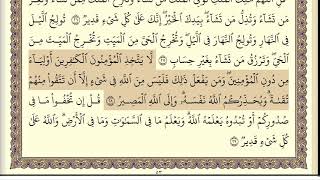 مَن تَشَآءُ وَتُذِلُّ مَن تَشَآءُ ۖ بِيَدِكَ ٱلْخَيْرُ ۖ إِنَّكَ عَلَىٰ كُلِّ شَىْءٍ قَدِيرٌ ۝ تُولِجُ ٱلَّيْلَ
فِى ٱلنَّهَارِ وَتُولِجُ ٱلنَّهَارَ فِى ٱلَّيْلِ ۖ وَتُخْرِجُ ٱلْحَىَّ مِنَ ٱلْمَيِّتِ وَتُخْرِجُ ٱلْمَيِّتَ مِنَ
ٱلْحَىِّ ۖ وَتَرْزُقُ مَن تَشَآءُ بِغَيْرِ حِسَابٍ ۝ لَّا يَتَّخِذِ ٱلْمُؤْمِنُونَ ٱلْكَٰفِرِينَ أَوْلِيَآءَ
مِن دُونِ ٱلْمُؤْمِنِينَ ۖ وَمَن يَفْعَلْ ذَٰلِكَ فَلَيْسَ مِنَ ٱللَّهِ فِى شَىْءٍ إِلَّآ أَن تَتَّقُوا۟ مِنْهُمْ
تُقَىٰةً ۗ وَيُحَذِّرُكُمُ ٱللَّهُ نَفْسَهُۥ ۗ وَإِلَى ٱللَّهِ ٱلْمَصِيرُ ۝ قُلْ إِن تُخْفُوا۟ مَا فِى
صُدُورِكُمْ أَوْ تُبْدُوهُ يَعْلَمْهُ ٱللَّهُ ۗ وَيَعْلَمُ مَا فِى ٱلسَّمَٰوَٰتِ وَمَا فِى ٱلْأَرْضِ ۗ وَٱللَّهُ عَلَىٰ
كُلِّ شَىْءٍ قَدِيرٌ ۝
٥٣